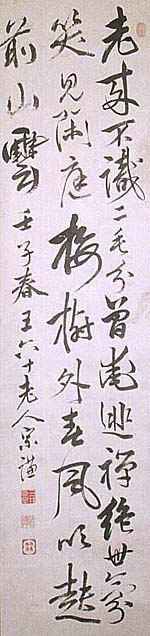 老來不識二毛分曾愛逃禪絶世氛
笑見閑庭梅樹外春風吹起
前山雲 壬子春王六十老人宗